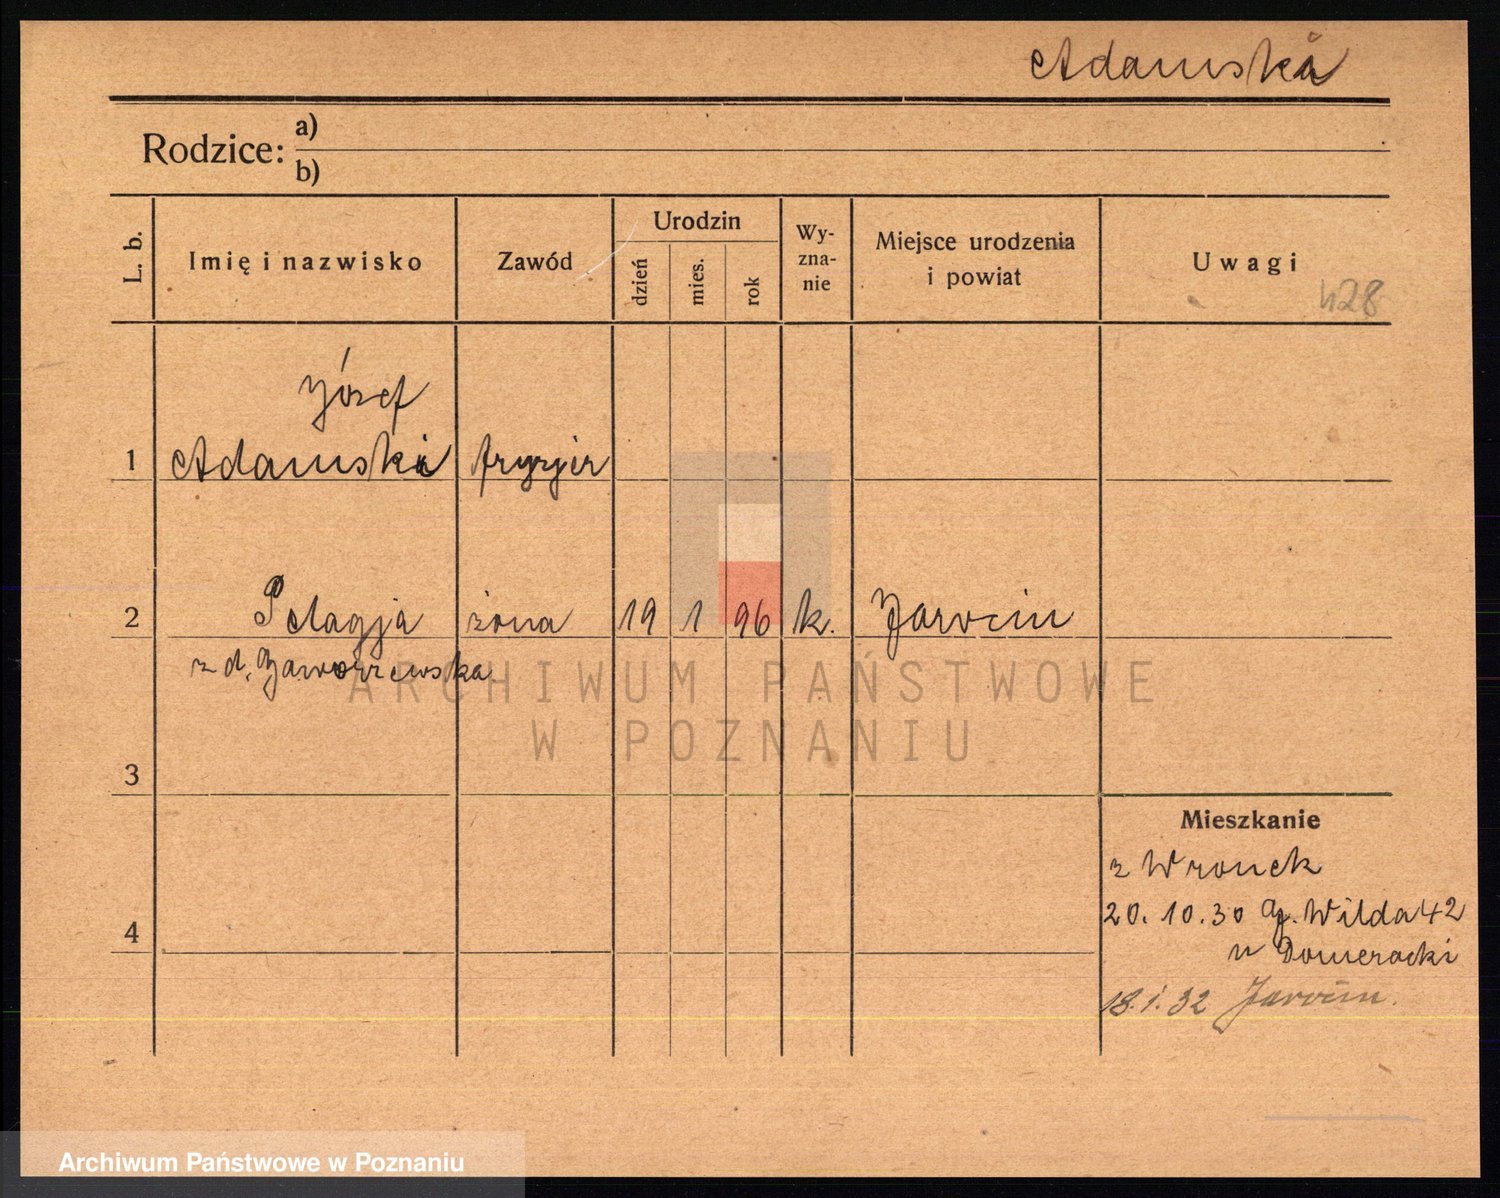 Adamska
Rodzice:
a)
b)
L. b.
Imię i nazwisko
Zawód
Urodzin
dzień
mies.
rok
Wy-
zna-
nie
Miejsce urodzenia
i powiat
Uwagi
428
Józef
1 Adamski fryzjer
2 Pelagja żona 19 1 96 k. Jarocin
z d. Jaworzewska
ARCHIWUM PAŃSTWOWE
W POZNANIU
3
Mieszkanie
z Wronek
20. 10. 30 G. Wilda 42
4
u Domeracki
18.1.32 Jarocin.
Archiwum Państwowe w Poznaniu